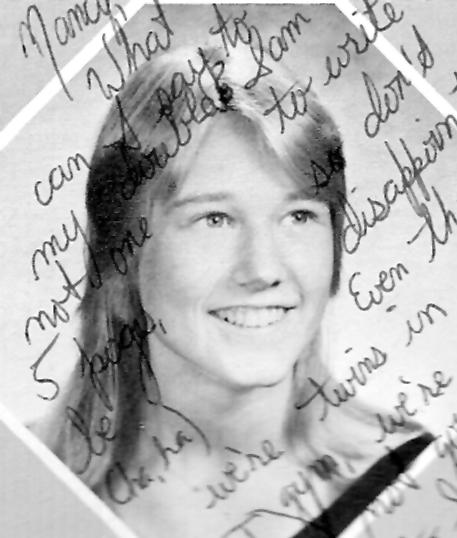 Nancy,
What
can I say to
my double? I am
not one to write
5 pages, so don't
be disappoin
(ha, ha) Even th
we're twins in
gym, we're
not go